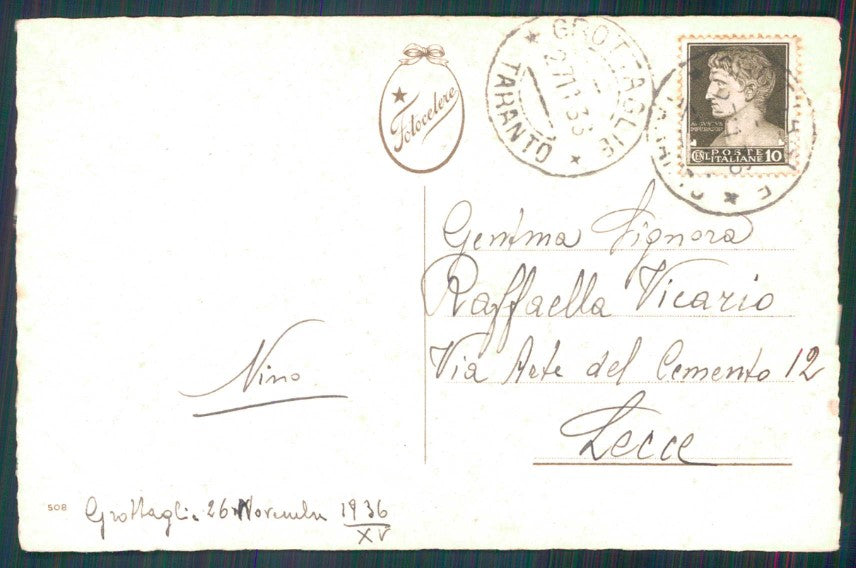 Fotocelere
GROTTAGLIE
TARANTO
POSTE
CENT. ITALIANE 10
Gentma Signora
Raffaella Vicario
Via Arte del Cemento 12
Lecce
Nino
508
Grottaglie 26 Novembre 1936
XV